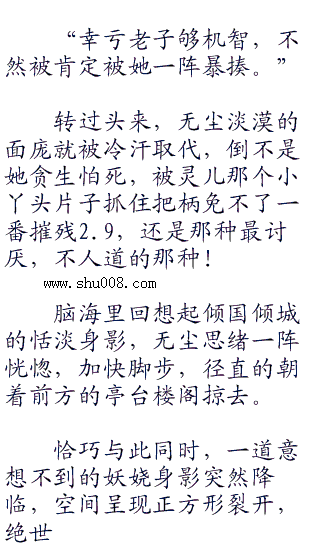 “幸亏老子够机智，不
然被肯定被她一阵暴揍。”
转过头来，无尘淡漠的
面庞就被冷汗取代，倒不是
她贪生怕死，被灵儿那个小
丫头片子抓住把柄免不了一
番摧残2.9，还是那种最讨
厌，不人道的那种！
www.shu008.com
脑海里回想起倾国倾城
的恬淡身影，无尘思绪一阵
恍惚，加快脚步，径直的朝
着前方的亭台楼阁掠去。
恰巧与此同时，一道意
想不到的妖娆身影突然降
临，空间呈现正方形裂开，
绝世